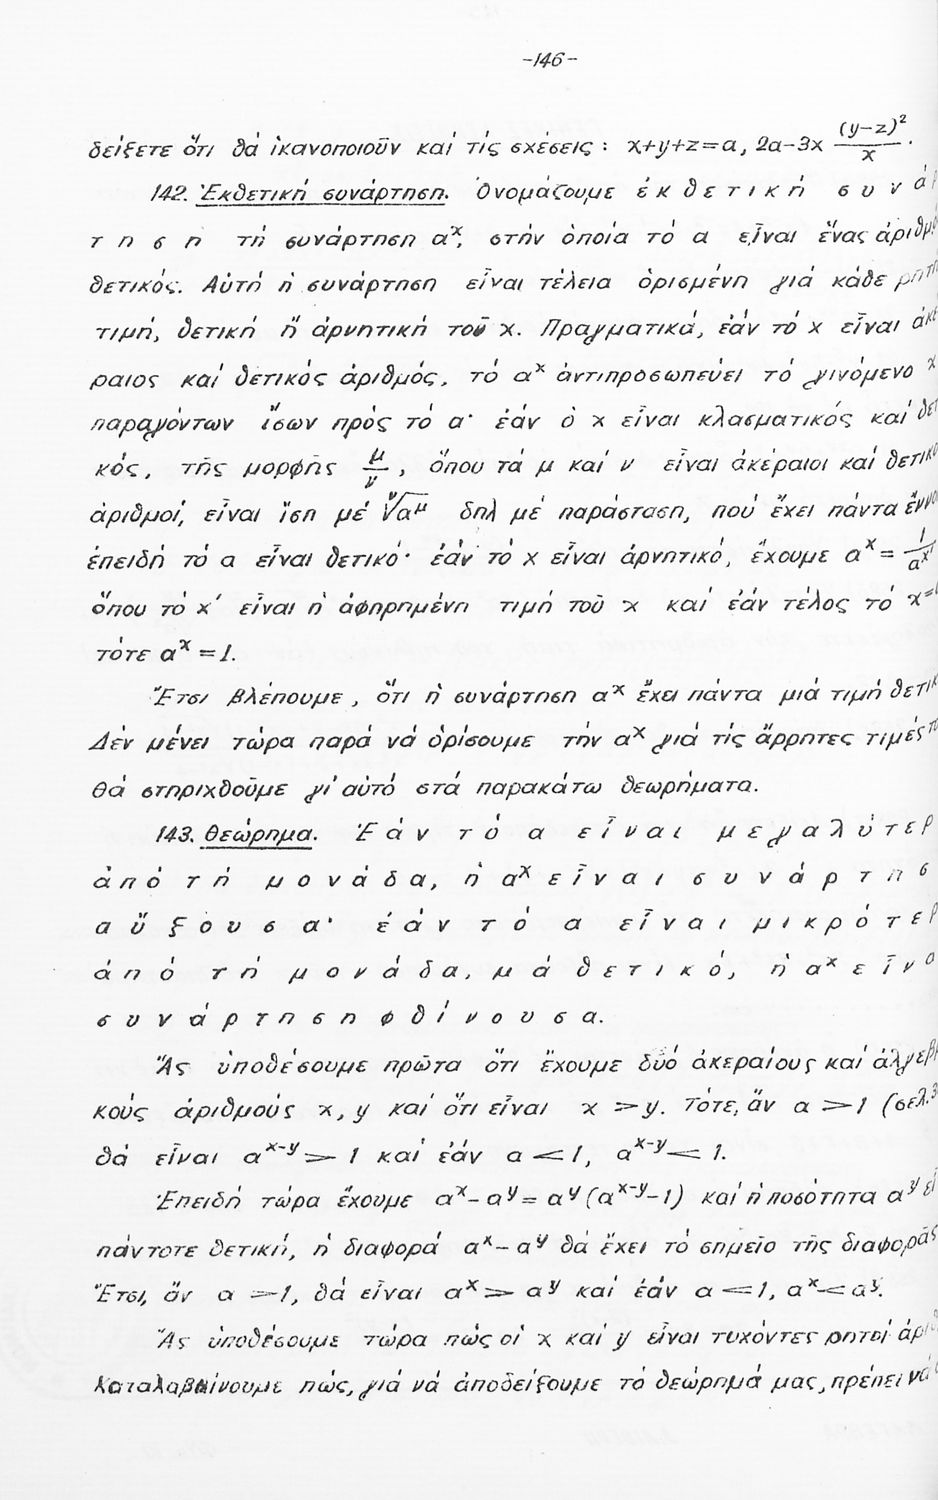 -146-
δείξετε ὅτι θά ἱκανοποιοῦν καί τίς σχέσεις : x+y+z=a, 2a-3x (y-z)²/x .
142. Ἐκθετική συνάρτηση. Ὀνομάζουμε ἐ κ θ ε τ ι κ ή σ υ ν ά ρ
τ η σ η τή συνάρτηση aˣ, στήν ὁποία τό a εἶναι ἕνας ἀριθμό
θετικός. Αὐτή ἡ συνάρτηση εἶναι τέλεια ὁρισμένη γιά κάθε ρητή
τιμή, θετική ἤ ἀρνητική τοῦ x. Πραγματικά, ἐάν τό x εἶναι ἀκέ
ραιος καί θετικός ἀριθμός, τό aˣ ἀντιπροσωπεύει τό γινόμενο x
παραγόντων ἴσων πρός τό a· ἐάν ὁ x εἶναι κλασματικός καί θετ
κός, τῆς μορφῆς μ/ν , ὅπου τά μ καί ν εἶναι ἀκέραιοι καί θετικο
ἀριθμοί, εἶναι ἴση μέ ᵛ√aᵘ δηλ μέ παράσταση, πού ἔχει πάντα ἔννο
ἐπειδή τό a εἶναι θετικό· ἐάν τό x εἶναι ἀρνητικό, ἔχουμε aˣ = 1/aˣ′
ὅπου τό x′ εἶναι ἡ ἀφηρημένη τιμή τοῦ x καί ἐάν τέλος τό x=
τότε aˣ =1.
Ἔτσι βλέπουμε, ὅτι ἡ συνάρτηση aˣ ἔχει πάντα μιά τιμή θετικ
Δέν μένει τώρα παρά νά ὁρίσουμε τήν aˣ γιά τίς ἄρρητες τιμές το
Θά στηριχθοῦμε γι' αὐτό στά παρακάτω θεωρήματα.
143. Θεώρημα. Ἐ ά ν τ ό a ε ἶ ν α ι μ ε γ α λ ύ τ ε ρ
ἀ π ό τ ή μ ο ν ά δ α, ἡ aˣ ε ἶ ν α ι σ υ ν ά ρ τ η σ
α ὔ ξ ο υ σ α· ἐ ά ν τ ό a ε ἶ ν α ι μ ι κ ρ ό τ ε ρ
ἀ π ό τ ή μ ο ν ά δ α, μ ά θ ε τ ι κ ό, ἡ aˣ ε ἶ ν α
σ υ ν ά ρ τ η σ η φ θ ί ν ο υ σ α.
Ἄς ὑποθέσουμε πρῶτα ὅτι ἔχουμε δύο ἀκεραίους καί ἀλγεβρ
κούς ἀριθμούς x, y καί ὅτι εἶναι x > y. Τότε, ἄν a > 1 (σελ.3
θά εἶναι aˣ⁻ʸ > 1 καί ἐάν a < 1, aˣ⁻ʸ < 1.
Ἐπειδή τώρα ἔχουμε aˣ- aʸ = aʸ (aˣ⁻ʸ-1) καί ἡ ποσότητα aʸ εἶ
πάντοτε θετική, ἡ διαφορά aˣ- aʸ θά ἔχει τό σημεῖο τῆς διαφορᾶς
Ἔτσι, ἄν a > 1, θά εἶναι aˣ > aʸ καί ἐάν a < 1, aˣ < aʸ.
Ἄς ὑποθέσουμε τώρα πώς οἱ x καί y εἶναι τυχόντες ρητοί ἀρι
Καταλαβαίνουμε πώς, γιά νά ἀποδείξουμε τό θεώρημά μας, πρέπει νά